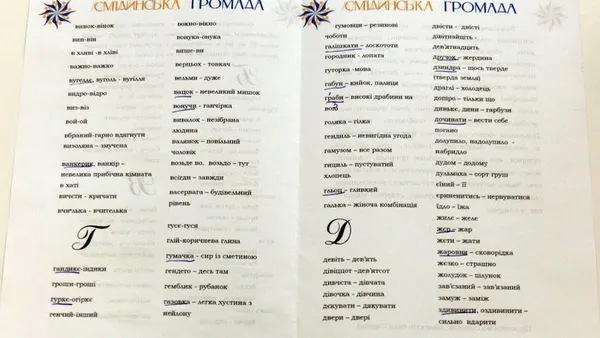 СМІДИНСЬКА ГРОМАДА
винок-вінок
вин-він
в хливі -в хліві
важко-важко
вугеллє, вуголь - вугілля
видро-відро
виз-віз
вой-ой
вбраний-гарно вдягнути
визолина – змучена
ванкерик, ванкір –
невелика прибічна кімната
в хаті
вичєсти - кричати
вчилька - вчителька
Г
гандикє-індики
гроши-гроші
гуркє-огірке
генчий-інший
вокно-вікно
вонука-онука
више-ви
верцьох - товкач
вельми - дуже
вацок – невеликий мішок
вонучи - ганчірка
вивалок – незібрана
людина
валянок – повільний
чоловік
возьде во, возьдо – тут
всігди – завжди
васервага – будівельний
рівень
гусє-гуся
глій-коричнева глина
гумачка – сир із сметиною
гендего – десь там
гемблик - рубанок
газовка – легка хустина з
нейлону
СМІДИНСЬКА ГРОМАДА
гумовци – резинові
чоботи
галішкати – лоскототи
городник - лопата
гуторка -мова
габун – кийок, палиця
граби – високі драбини на
воз
голяка – гілка
гендиль – невигідна угода
гамузом – все разом
гициль – пустуватий
хлопець
гльоц – гливкий
галька – жіноча комбінація
Д
девіть – дев'ять
двіщцот -дев'ятсот
дивчєта – дівчата
дівочка - дівчина
дєкувати – дякувати
двери – двері
двєсти – двісті
двітнайціть -
дев'ятнадцять
дручок – жердина
дзиндра – щось тверде
(тверда земля)
драглі – холодець
допіро – тільки що
диньке, дини – гарбузи
дочинати – вести себе
погано
долупило, надолупило -
набридло
дудом – додому
дульмаха – сорт груш
єїний – її
єрипенитись – нервуватися
їдло – їжа
жилє – желе
жєр – жар
жєти – жати
жаровня – сковорідка
жєзко – страшно
жолудок – шлунок
зав'єзаний – зав'язаний
замуж – заміж
здивинити, оздивинити –
сильно вдарити